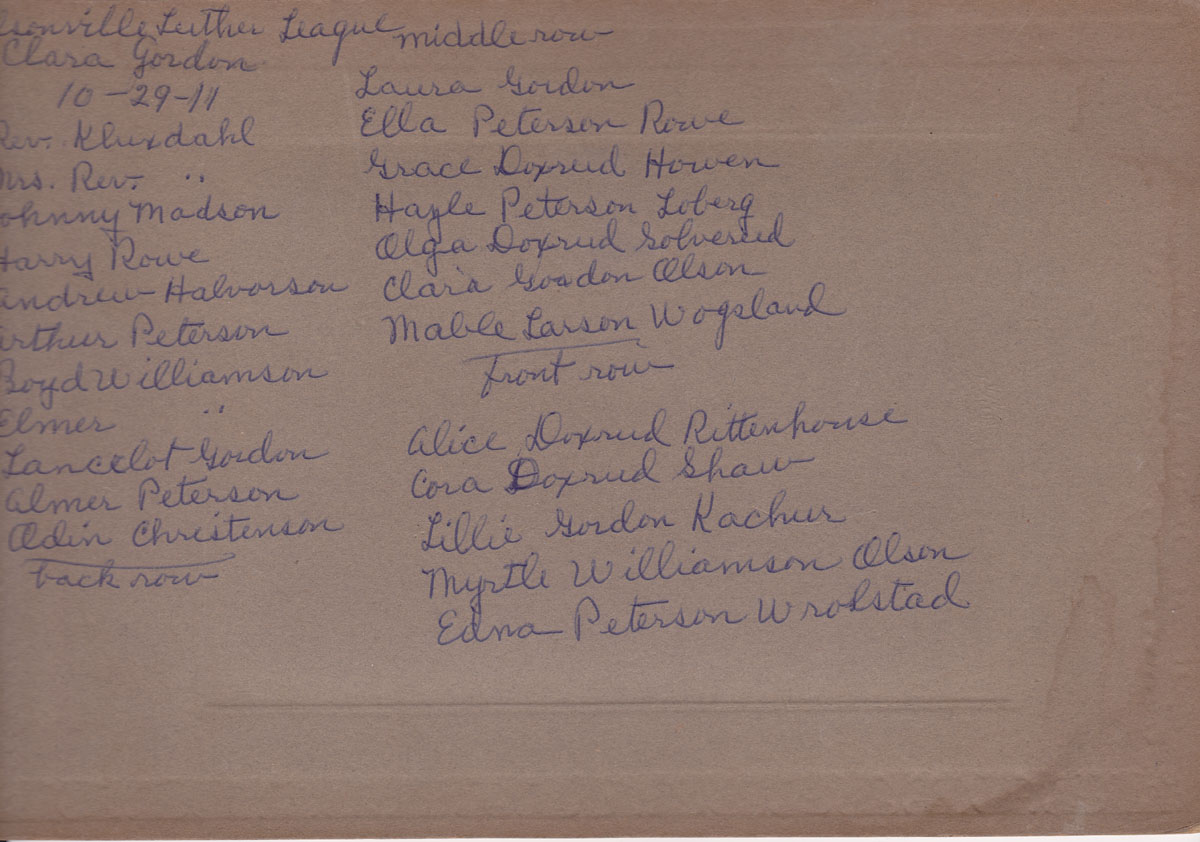 lsonville Luther League
Clara Gordon
10-29-11
Rev. Kluxdahl
Mrs. Rev. "
Johnny Madson
Harry Rowe
Andrew Halvorson
Arthur Peterson
Boyd Williamson
Elmer "
Lancelot Gordon
Almer Peterson
Odin Christenson
back row
middle row
Laura Gordon
Ella Peterson Rowe
Grace Doxrud Howen
Hazle Peterson Loberg
Olga Doxrud Solverud
Clara Gordon Olson
Mable Larson Wogsland
front row
Alice Doxrud Rittenhouse
Cora Doxrud Shaw
Lillie Gordon Kachur
Myrtle Williamson Olson
Edna Peterson Wrolstad